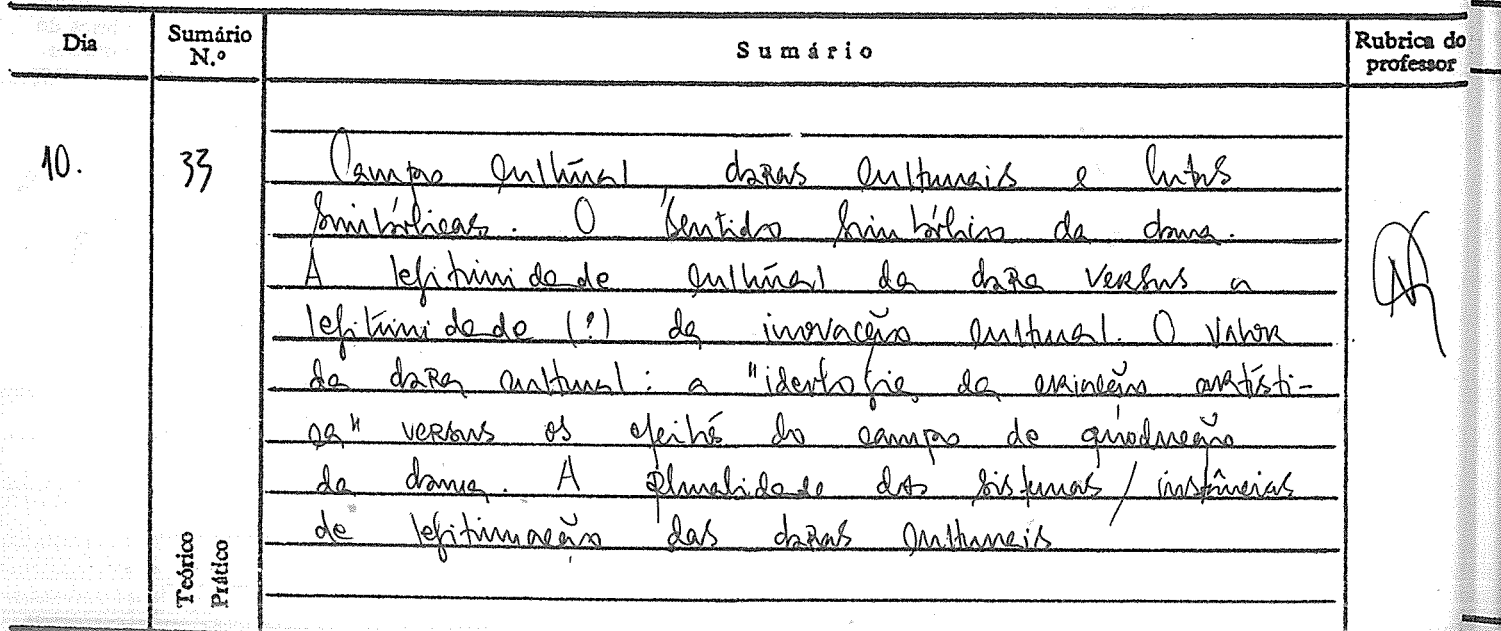 Dia
Sumário N.º
Sumário
Rubrica do professor
10.
33
Campo cultural obras culturais e lutas
simbólicas. O sentido simbólico da dança.
A legitimidade cultural da obra versus a
legitimidade (?) da inovação cultural. O valor
da obra cultural: a "ideologia da criação artísti-
ca" versus os efeitos do campo de produção
da dança. A pluralidade dos sistemas / instâncias
de legitimação das obras culturais
Teórico
Prático